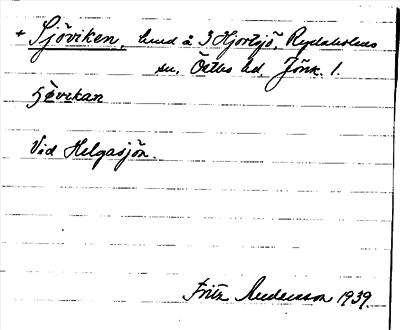 * Sjöviken, lund å 3 Hjortsjö, Rydaholms
sn, Östbo hd, Jönk. l.
Sjøvikan
Vid Helgasjön.
Fritz Andersson 1939.